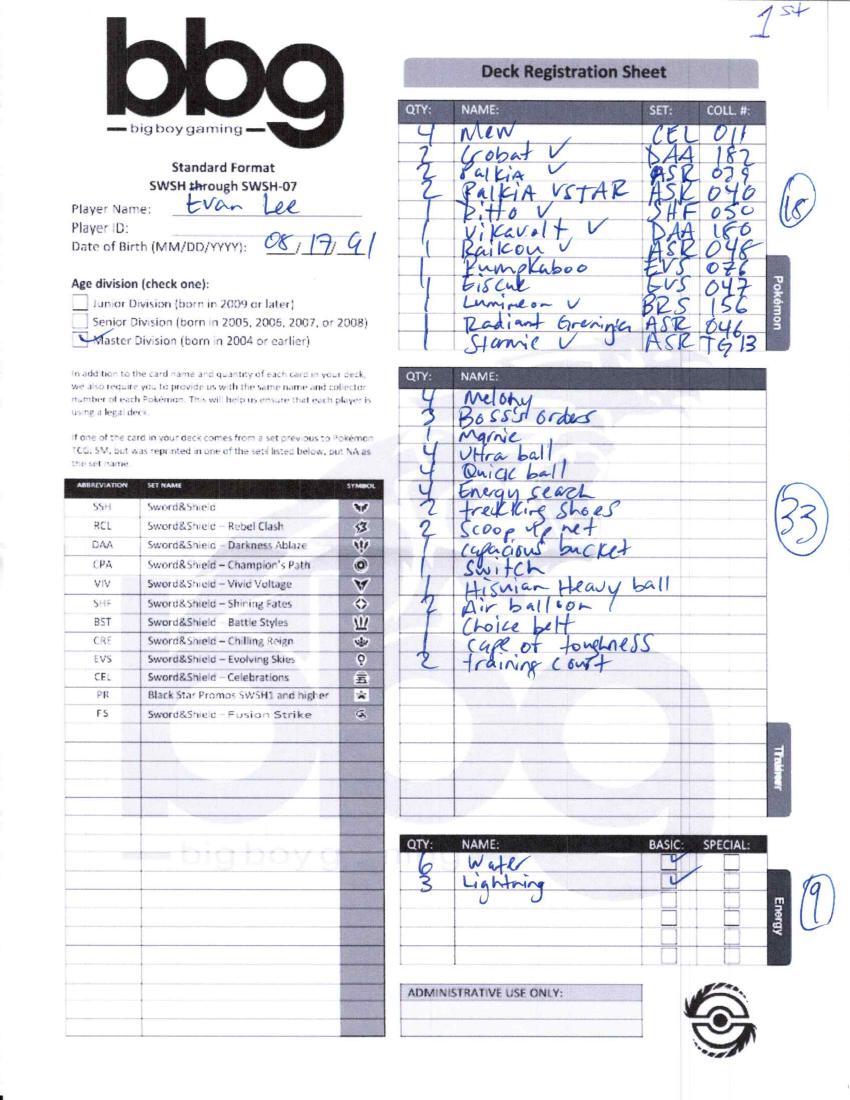 1st
bbg
big boy gaming
Deck Registration Sheet
Standard Format
SWSH through SWSH-07
Player Name: Evan Lee
Player ID:
Date of Birth (MM/DD/YYYY): 08/17/91
Age division (check one):
Junior Division (born in 2009 or later)
Senior Division (born in 2005, 2006, 2007, or 2008)
Master Division (born in 2004 or earlier)
In addition to the card name and quantity of each card in your deck,
we also require you to provide us with the same name and collector
number of each Pokémon. This will help us ensure that each player is
using a legal deck.
If one of the card in your deck comes from a set previous to Pokémon
TCG: SM, but was reprinted in one of the sets listed below, put NA as
the set name.
ABBREVIATION SET NAME SYMBOL
SSH Sword&Shield
RCL Sword&Shield – Rebel Clash
DAA Sword&Shield – Darkness Ablaze
CPA Sword&Shield – Champion's Path
VIV Sword&Shield – Vivid Voltage
SHF Sword&Shield – Shining Fates
BST Sword&Shield – Battle Styles
CRE Sword&Shield – Chilling Reign
EVS Sword&Shield – Evolving Skies
CEL Sword&Shield – Celebrations
PR Black Star Promos SWSH1 and higher
FS Sword&Shield – Fusion Strike
QTY: NAME: SET: COLL. #:
4 Mew CEL 011
2 Crobat V DAA 182
2 Palkia V ASR 039
2 Palkia VSTAR ASR 040
1 Ditto V SHF 050
1 Vikavolt V DAA 180
1 Raikou V ASR 048
1 Pumpkaboo EVS 076
1 Eiscue EVS 047
1 Lumineon V BRS 156
1 Radiant Greninja ASR 046
1 Starmie V ASR TG13
18
Pokémon
QTY: NAME:
4 Melony
3 Boss's orders
1 Marnie
4 Ultra ball
4 Quick ball
4 Energy search
2 trekking shoes
2 Scoop up net
1 capacious bucket
1 Switch
1 Hisuian Heavy ball
2 Air balloon
1 Choice belt
1 cape of toughness
2 training court
33
Trainer
QTY: NAME: BASIC: SPECIAL:
6 Water
3 Lightning
9
Energy
ADMINISTRATIVE USE ONLY:
bbg
big boy gaming